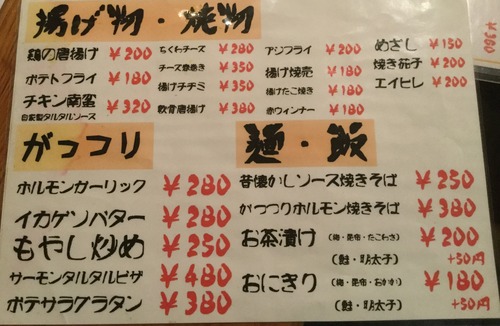 揚げ物・焼物
鶏の唐揚げ ¥200
ポテトフライ ¥180
チキン南蛮 ¥320
自家製タルタルソース
ちくわチーズ ¥280
チーズ春巻き ¥350
揚げチヂミ ¥350
軟骨唐揚げ ¥380
アジフライ ¥200
揚げ焼売 ¥180
揚げたこ焼き ¥180
赤ウィンナー ¥180
めざし ¥150
焼き茄子 ¥200
エイヒレ ¥200
¥380
がっつり
ホルモンガーリック ¥280
イカゲソバター ¥280
もやし炒め ¥250
サーモンタルタルピザ ¥480
ポテサラグラタン ¥380
麺・飯
昔懐かしソース焼きそば ¥250
がっつりホルモン焼きそば ¥380
お茶漬け (梅・昆布・たこわさ) ¥200
(鮭・明太子) +50円
おにぎり (梅・昆布・おかか) ¥180
(鮭・明太子) +50円